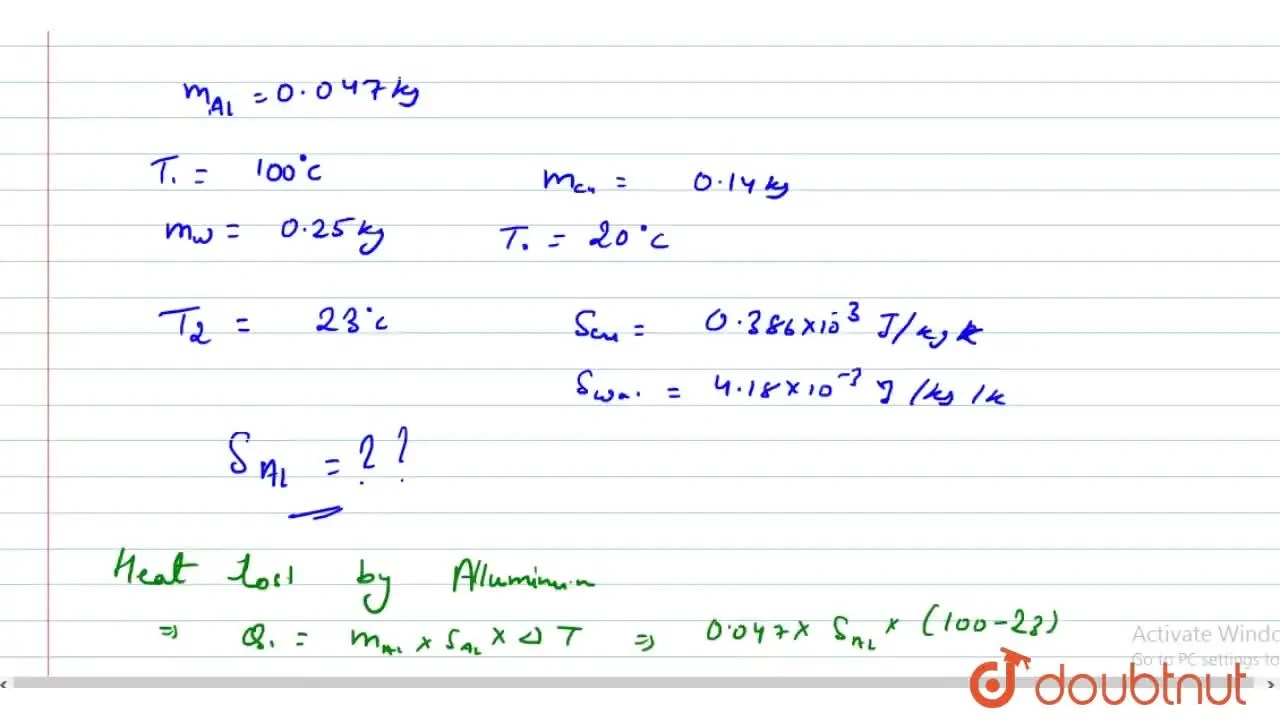 mAl = 0.047 kg
T₁ = 100°C
mcu = 0.14 kg
mw = 0.25 kg
T₁ = 20°C
T₂ = 23°C
Scu = 0.386×10⁻³ J/kg K
Swa. = 4.18×10⁻³ J/kg/K
SAl = ??
Heat lost by Alluminum
⇒ Q₁ = mAl × SAL × ΔT ⇒ 0.047 × SAL × (100-23)
Activate Windo
Go to PC settings to
doubtnut